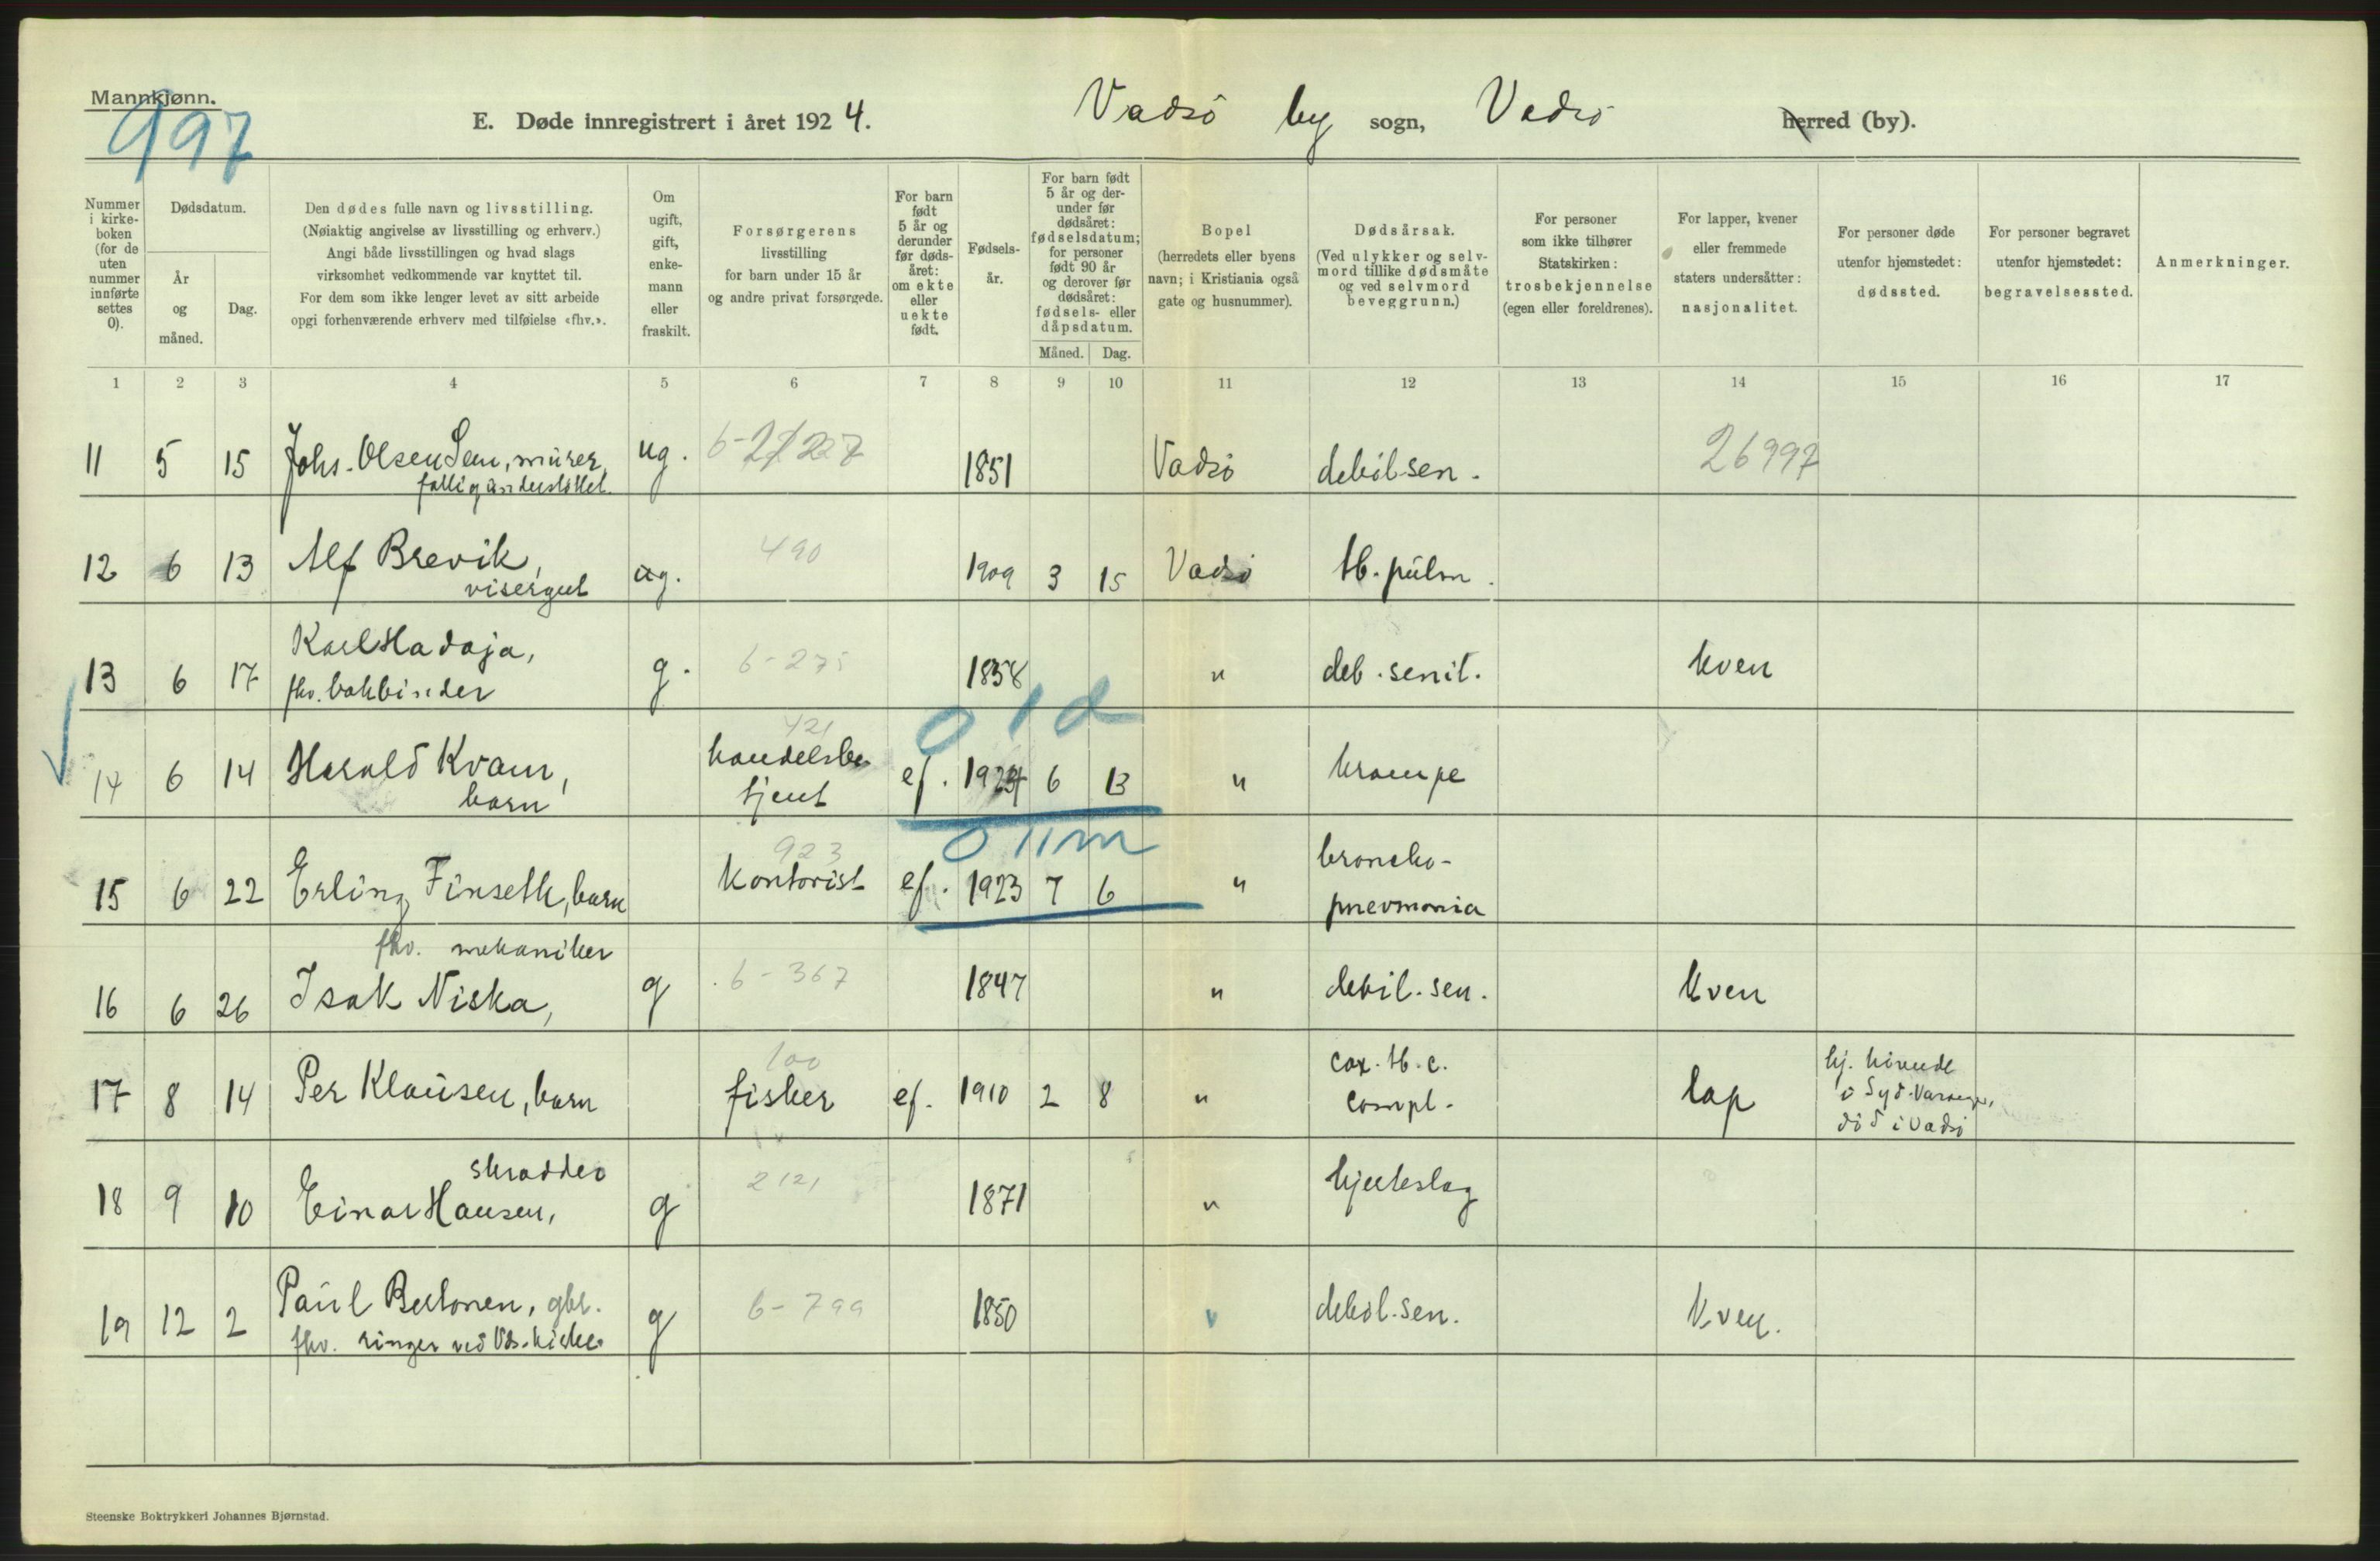 Mannkjønn.
997
E. Døde innregistrert i året 1924.
Vadsö by sogn, Vadsö herred (by).
Nummer i kirke-boken (for de uten nummer innførte settes 0).
Dødsdatum.
År og måned.
Dag.
Den dødes fulle navn og livsstilling.
(Nøiaktig angivelse av livsstilling og erhverv.)
Angi både livsstillingen og hvad slags
virksomhet vedkommende var knyttet til.
For dem som ikke lenger levet av sitt arbeide
opgi forhenværende erhverv med tilføielse «fhv.».
Om ugift, gift, enke-mann eller fraskilt.
Forsørgerens
livsstilling
for barn under 15 år
og andre privat forsørgede.
For barn født 5 år og derunder før døds-året: om ekte eller uekte født.
Fødsels-år.
For barn født 5 år og der-under før dødsåret: fødselsdatum; for personer født 90 år og derover før dødsåret: fødsels- eller dåpsdatum.
Måned. Dag.
Bopel
(herredets eller byens
navn; i Kristiania også
gate og husnummer).
Dødsårsak.
(Ved ulykker og selv-
mord tillike dødsmåte
og ved selvmord
beveggrunn.)
For personer
som ikke tilhører
Statskirken:
trosbekjennelse
(egen eller foreldrenes).
For lapper, kvener
eller fremmede
staters undersåtter:
nasjonalitet.
For personer døde
utenfor hjemstedet:
dødssted.
For personer begravet
utenfor hjemstedet:
begravelsessted.
Anmerkninger.
1 2 3 4 5 6 7 8 9 10 11 12 13 14 15 16 17
11 5 15 Johs. Olsen Sem, murer, ug. 1851 Vadsö debil sen. 26997
12 6 13 Alf Brevik, ug. 490 1909 3 15 Vadsö tb. pulm.
visergut
13 6 17 Karl Hadaja, g. 6-275 1838 " deb. senil. kven
fhv. bokbinder
0 1 d
421
14 6 14 Harald Kvam, handelsbe ef. 1924 6 13 " krampe
barn tjent
0 11 m
923
15 6 22 Erling Finseth, barn kontorist ef. 1923 7 6 " broncho-
pnevmonia
fhv. mekaniker
16 6 26 Isak Niska, g 6-367 1847 " debil. sen. kven
100
17 8 14 Per Klausen, barn fisker ef. 1910 2 8 " cox. tb. c. lap
compl.
i Syd-Varanger,
död i Vadsö
skrædder
18 9 10 Einar Hansen, g 2121 1871 " hjerteslag
19 12 2 Paul Bertonen, gbr. g 6-799 1850 " debil. sen. Kven.
fhv. ringer ved Vds. kirke
Steenske Boktrykkeri Johannes Bjørnstad.